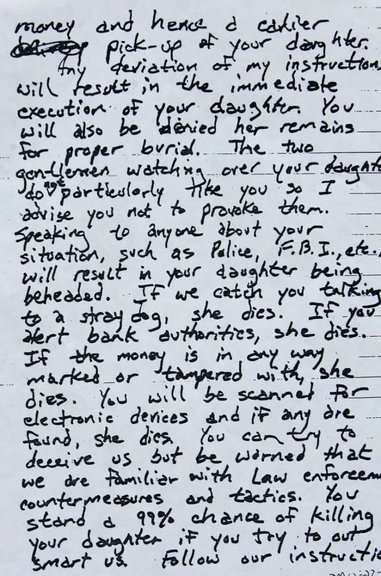 money and hence a earlier
pick-up of your daughter.
Any deviation of my instructions
will result in the immediate
execution of your daughter. You
will also be denied her remains
for proper burial. The two
gentlemen watching over your daughter
do not particularly like you so I
advise you not to provoke them.
Speaking to anyone about your
situation, such as Police, F.B.I., etc.,
will result in your daughter being
beheaded. If we catch you talking
to a stray dog, she dies. If you
alert bank authorities, she dies.
If the money is in any way
marked or tampered with, she
dies. You will be scanned for
electronic devices and if any are
found, she dies. You can try to
deceive us but be warned that
we are familiar with Law enforcem
countermeasures and tactics. You
stand a 99% chance of killing
your daughter if you try to out
smart us. Follow our instructio